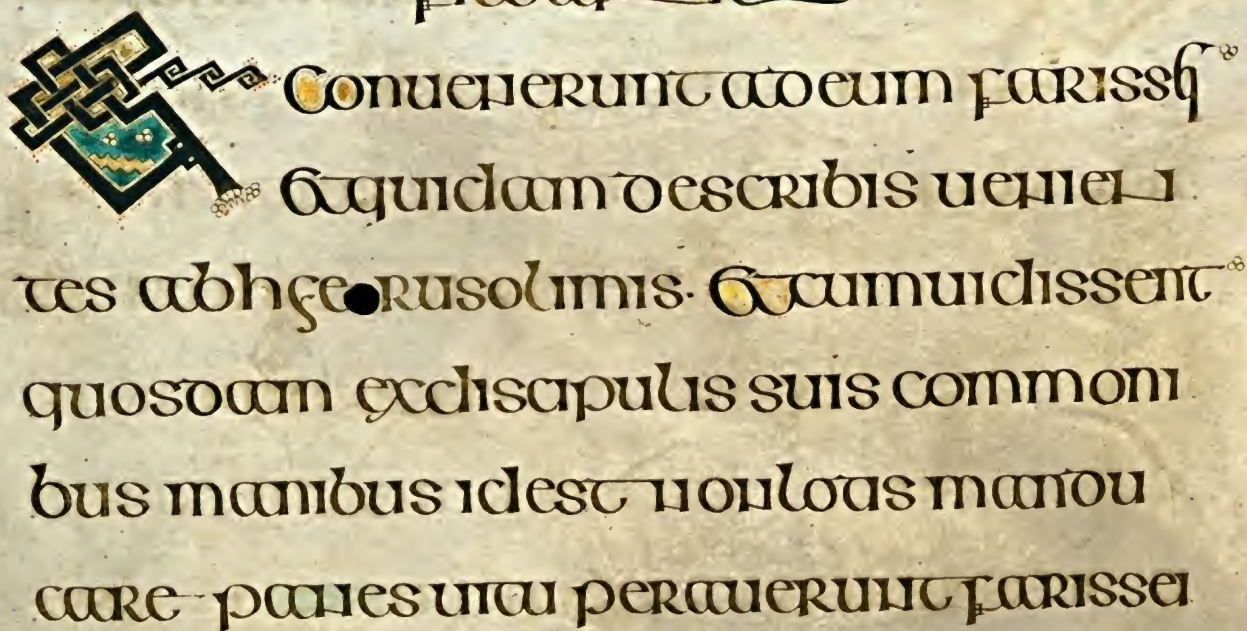 Et Conuenerunt ad eum farissei
Et quidam de scribis uenien
tes ab hierusolimis · Et cum uidissent
quosdam ex discipulis suis commoni
bus manibus id est non lotas mandu
care panes uitu perauerunt farissei